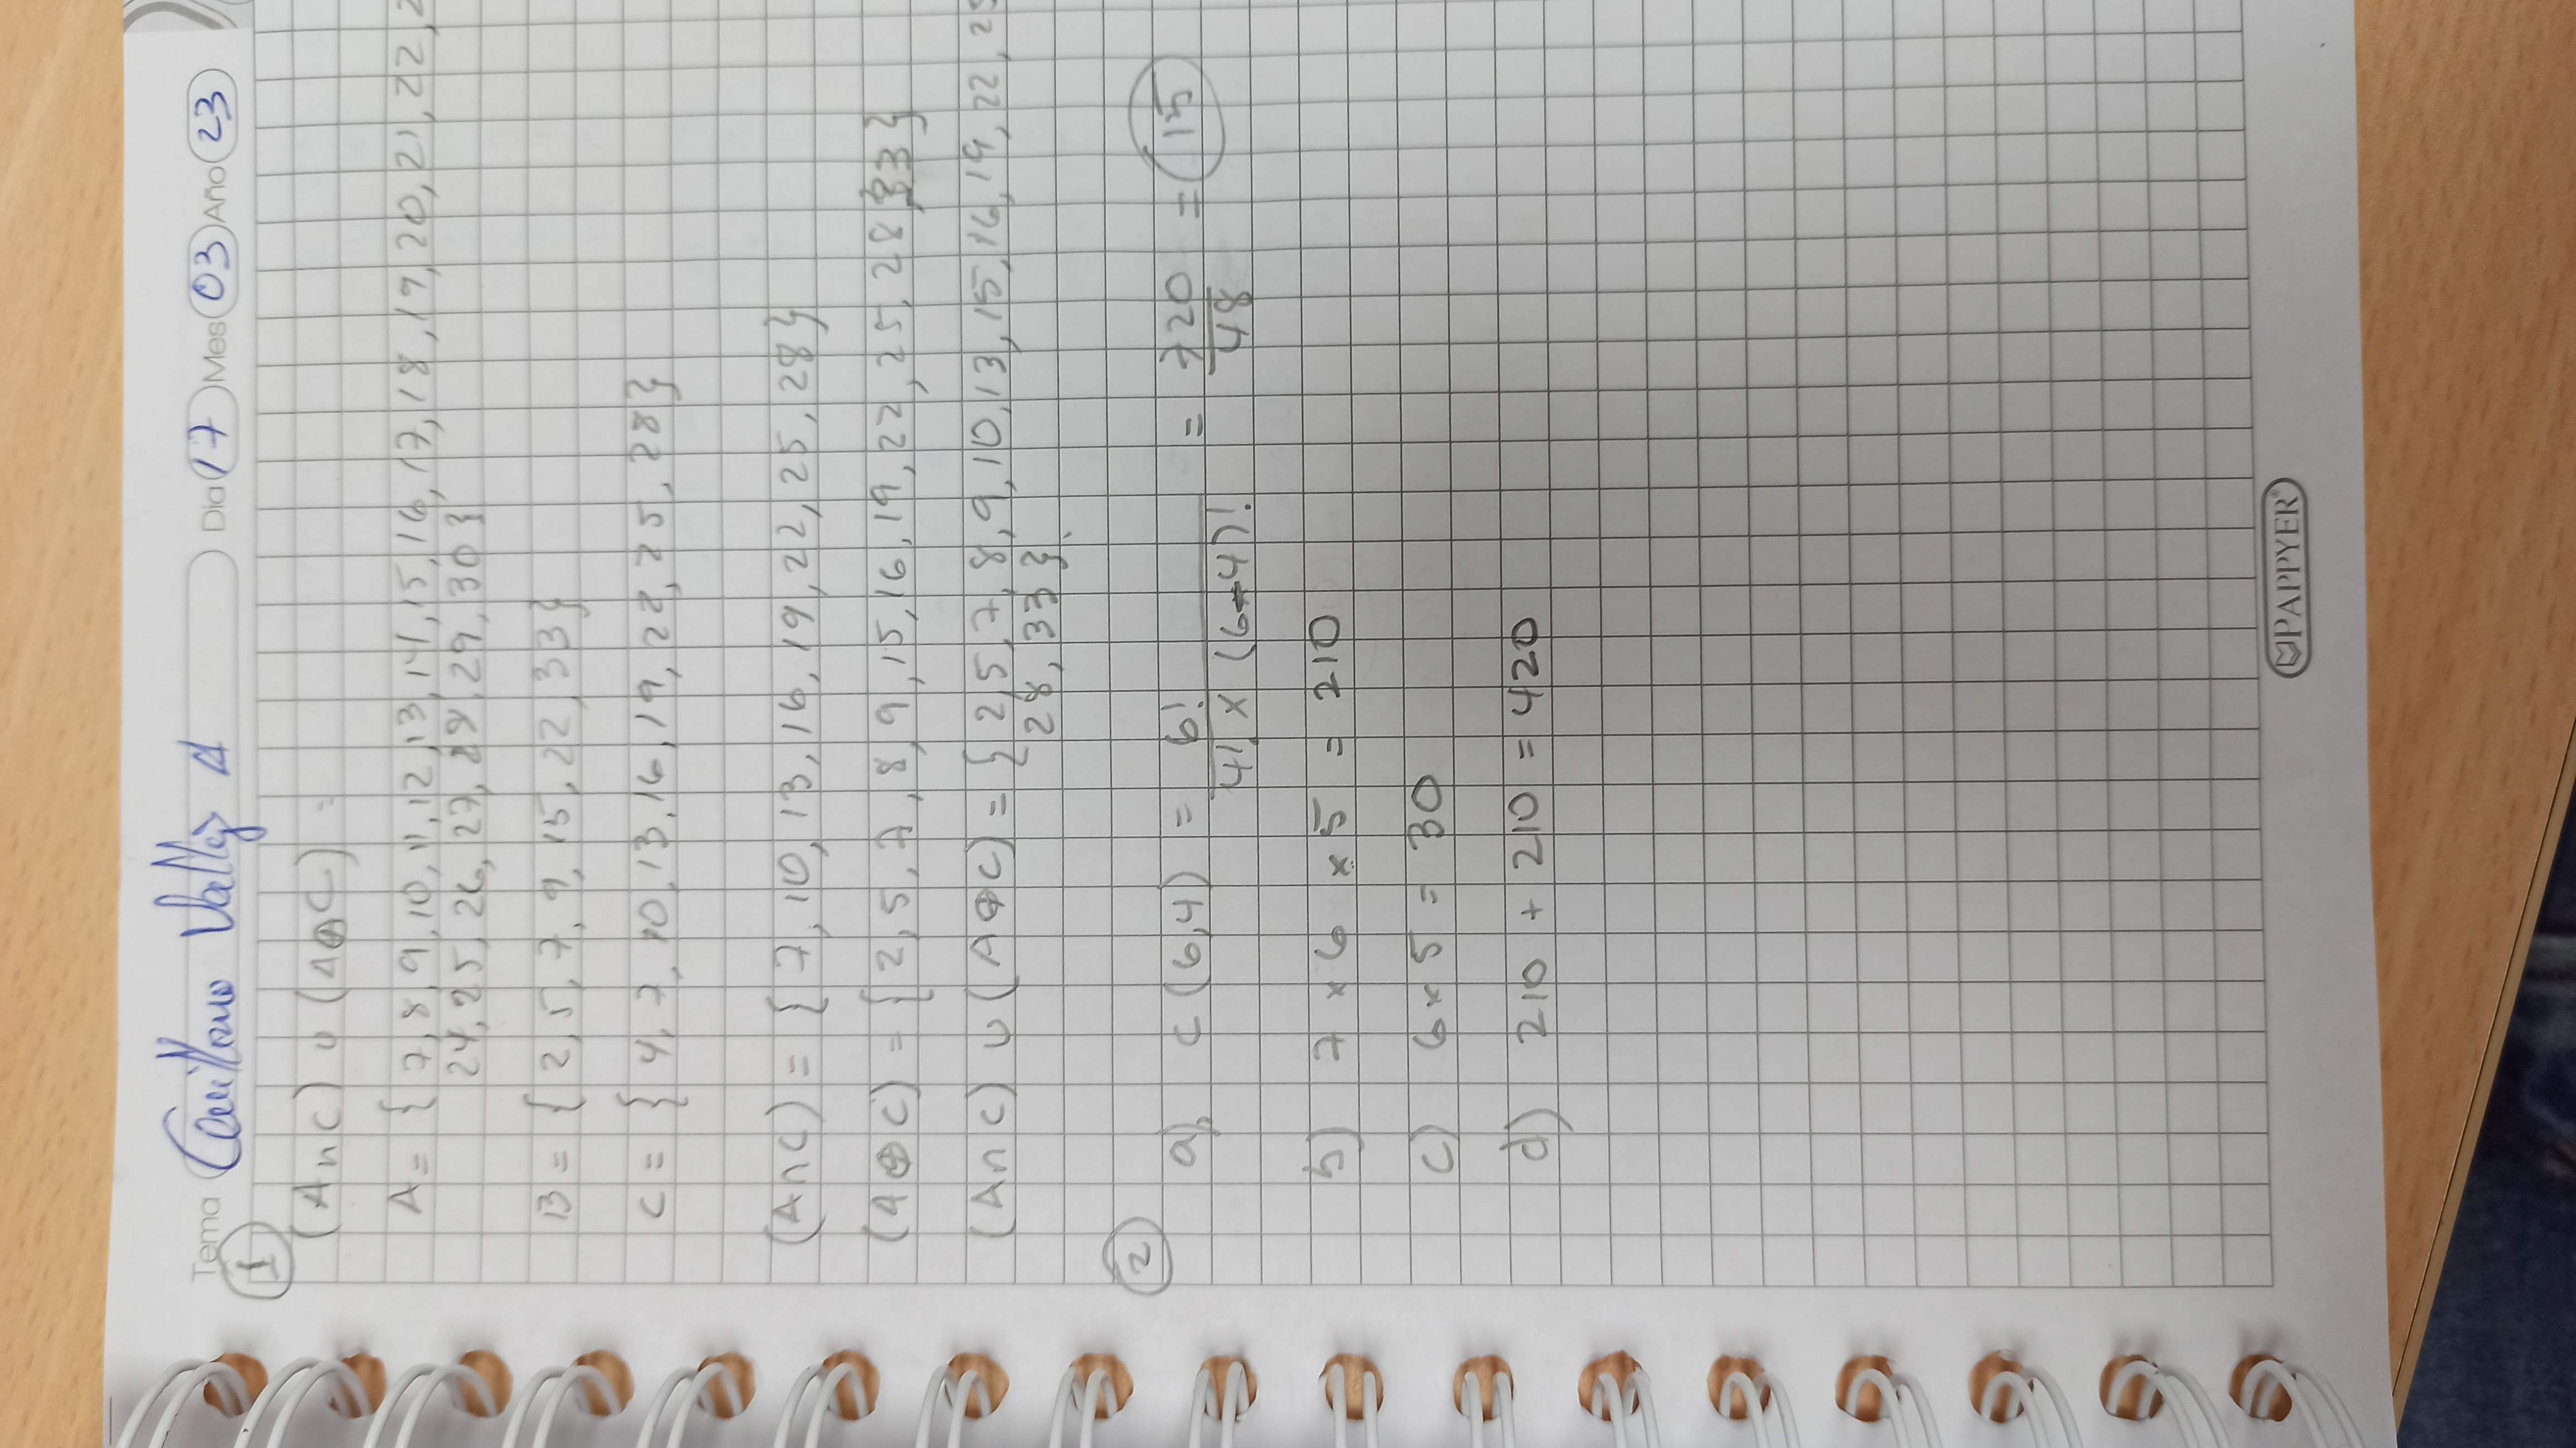 Tema Camilo Vallejo A Dia 17 Mes 03 Año 23
1
(A∩C) ∪ (A⊕C) =
A = { 7, 8, 9, 10, 11, 12, 13, 14, 15, 16, 17, 18, 19, 20, 21, 22, 2
24, 25, 26, 27, 28, 29, 30 }
B = { 2, 5, 7, 9, 15, 22, 33 }
C = { 4, 7, 10, 13, 16, 19, 22, 25, 28 }
(A∩C) = { 7, 10, 13, 16, 19, 22, 25, 28 }
(A⊕C) = { 2, 5, 7, 8, 9, 15, 16, 19, 22, 25, 28, 33 }
(A∩C) ∪ (A⊕C) = { 2, 5, 7, 8, 9, 10, 13, 15, 16, 19, 22, 25
28, 33 }.
2
a) C (6,4) = 6! / 4! x (6-4)! = 720 / 48 = 15
b) 7 x 6 x 5 = 210
c) 6 x 5 = 30
d) 210 + 210 = 420
PAPPYER